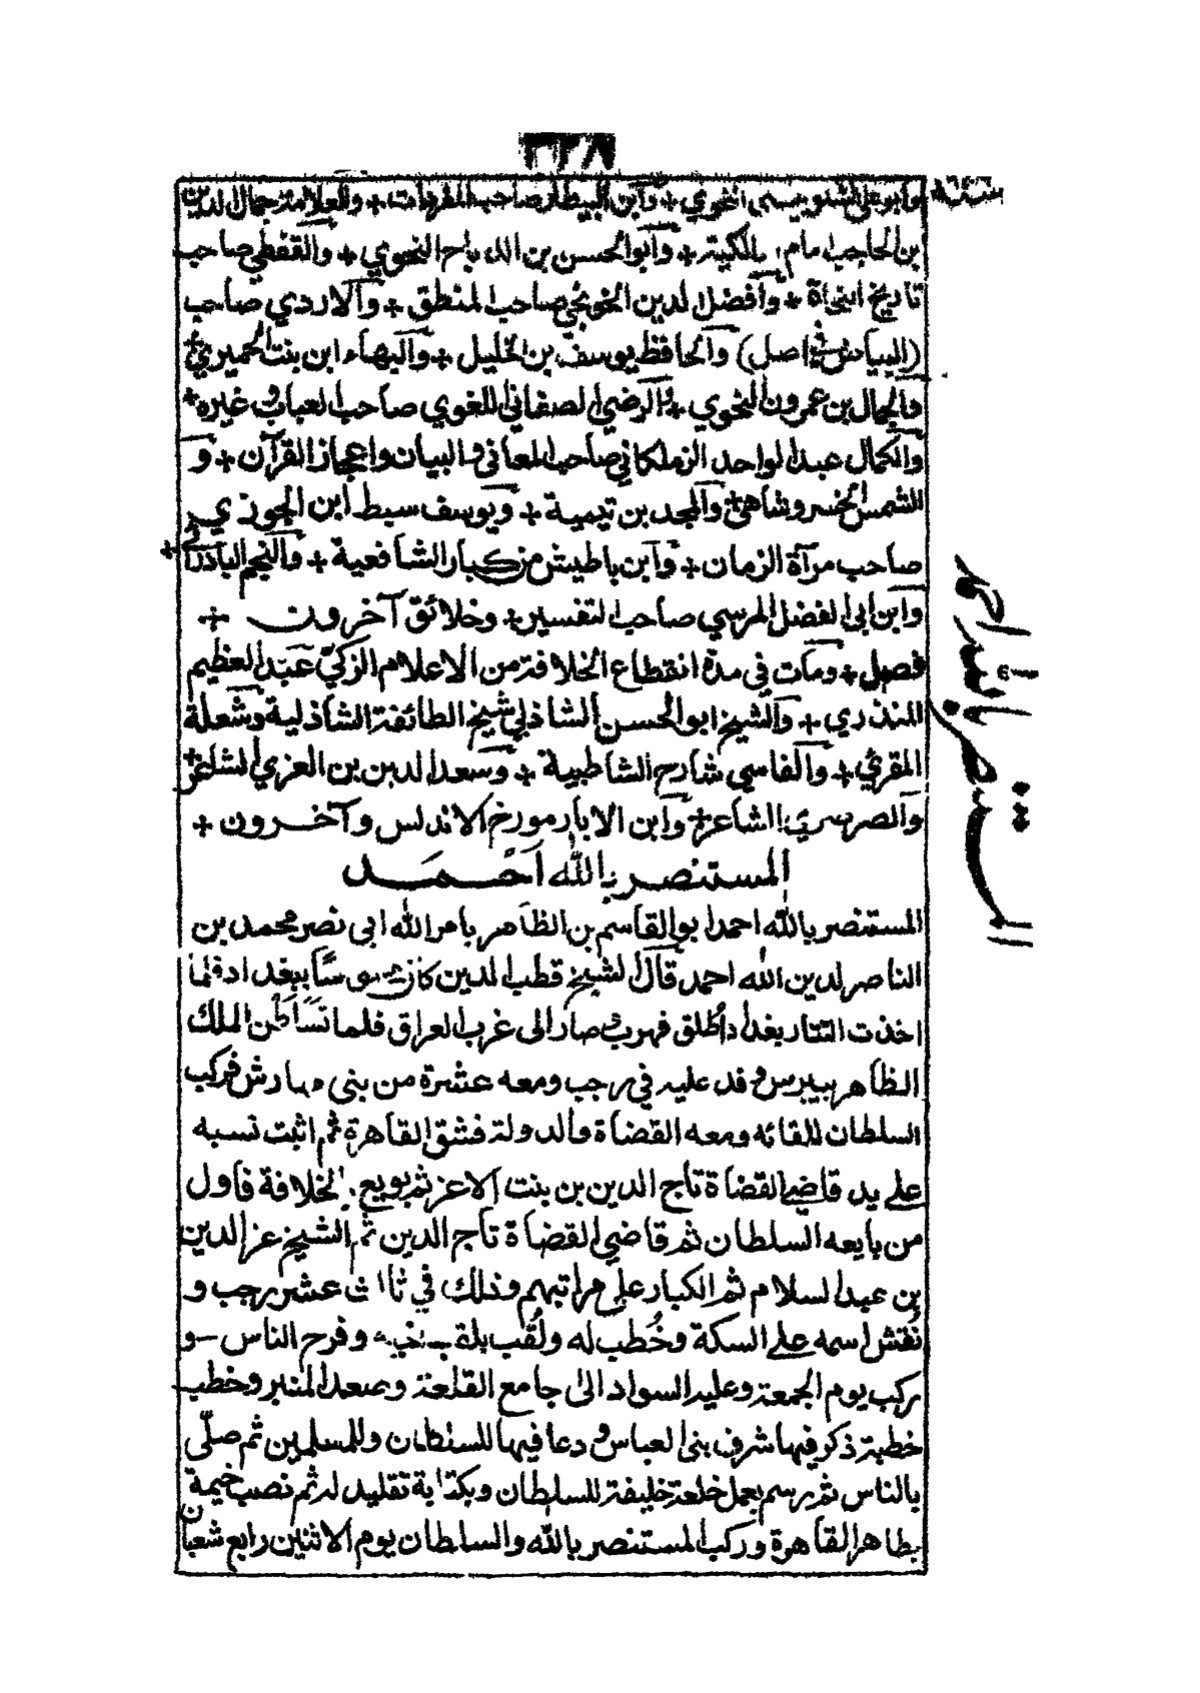 ٣٣٨
وابو علي الشلوبيني النحوي + وابن البيطار صاحب المفردات + والعلامة جمال الدين
بن الحاجب امام المالكية + وابو الحسن بن الدباج النحوي + والقفطي صاحب
تاريخ النحاة + وأفضل الدين الخونجي صاحب المنطق + والازدي صاحب
والحافظ يوسف بن الخليل + والبهاء ابن بنت الحميري +
والجمال بن عمرون النحوي + والرضي الصغاني اللغوي صاحب العباب وغيره +
والكمال عبد الواحد الزملكاني صاحب المعاني والبيان واعجاز القرآن + و
الشمس الخسروشاهي + والمجد بن تيمية + ويوسف سبط ابن الجوزي
صاحب مرآة الزمان + وابن باطيش من كبار الشافعية + والنجم البادرائي +
وابن ابي الفضل المرسي صاحب التفسير + وخلائق آخرون +
فصل + ومات في مدة انقطاع الخلافة من الاعلام الزكي عبد العظيم
المنذري + والشيخ ابو الحسن الشاذلي شيخ الطائفة الشاذلية وشعلة
المقرئ + والفاسي شارح الشاطبية + وسعد الدين بن العزي الشاعر +
والصرصري الشاعر + وابن الابار مورخ الاندلس وآخرون +
المستنصر بالله أحمد
المستنصر بالله احمد ابو القاسم بن الظاهر بامر الله ابي نصر محمد بن
الناصر لدين الله احمد قال الشيخ قطب الدين كان محبوسًا ببغداد فلما
اخذت التتار بغداد أطلق فهرب وصار الى غرب العراق فلما تسلطن الملك
الظاهر بيبرس وفد عليه في رجب ومعه عشرة من بني مهارش فركب
السلطان للقائه ومعه القضاة والدولة فشق القاهرة ثم اثبت نسبه
على يد قاضي القضاة تاج الدين بن بنت الاعز ثم بويع بالخلافة فاول
من بايعه السلطان ثم قاضي القضاة تاج الدين ثم الشيخ عز الدين
بن عبد السلام ثم الكبار على مراتبهم وذلك في ثالث عشر رجب و
نُقش اسمه على السكة وخُطب له ولُقب بلقب اخيه وفرح الناس و
ركب يوم الجمعة وعليه السواد الى جامع القلعة وصعد المنبر وخطب
خطبة ذكر فيها شرف بني العباس ودعا فيها للسلطان وللمسلمين ثم صلّى
بالناس ثم رسم بعمل خلعة خليفة للسلطان وبكتابة تقليد له ثم نصب خيمة
بظاهر القاهرة وركب المستنصر بالله والسلطان يوم الاثنين رابع شعبان
المستنصر بالله احمد